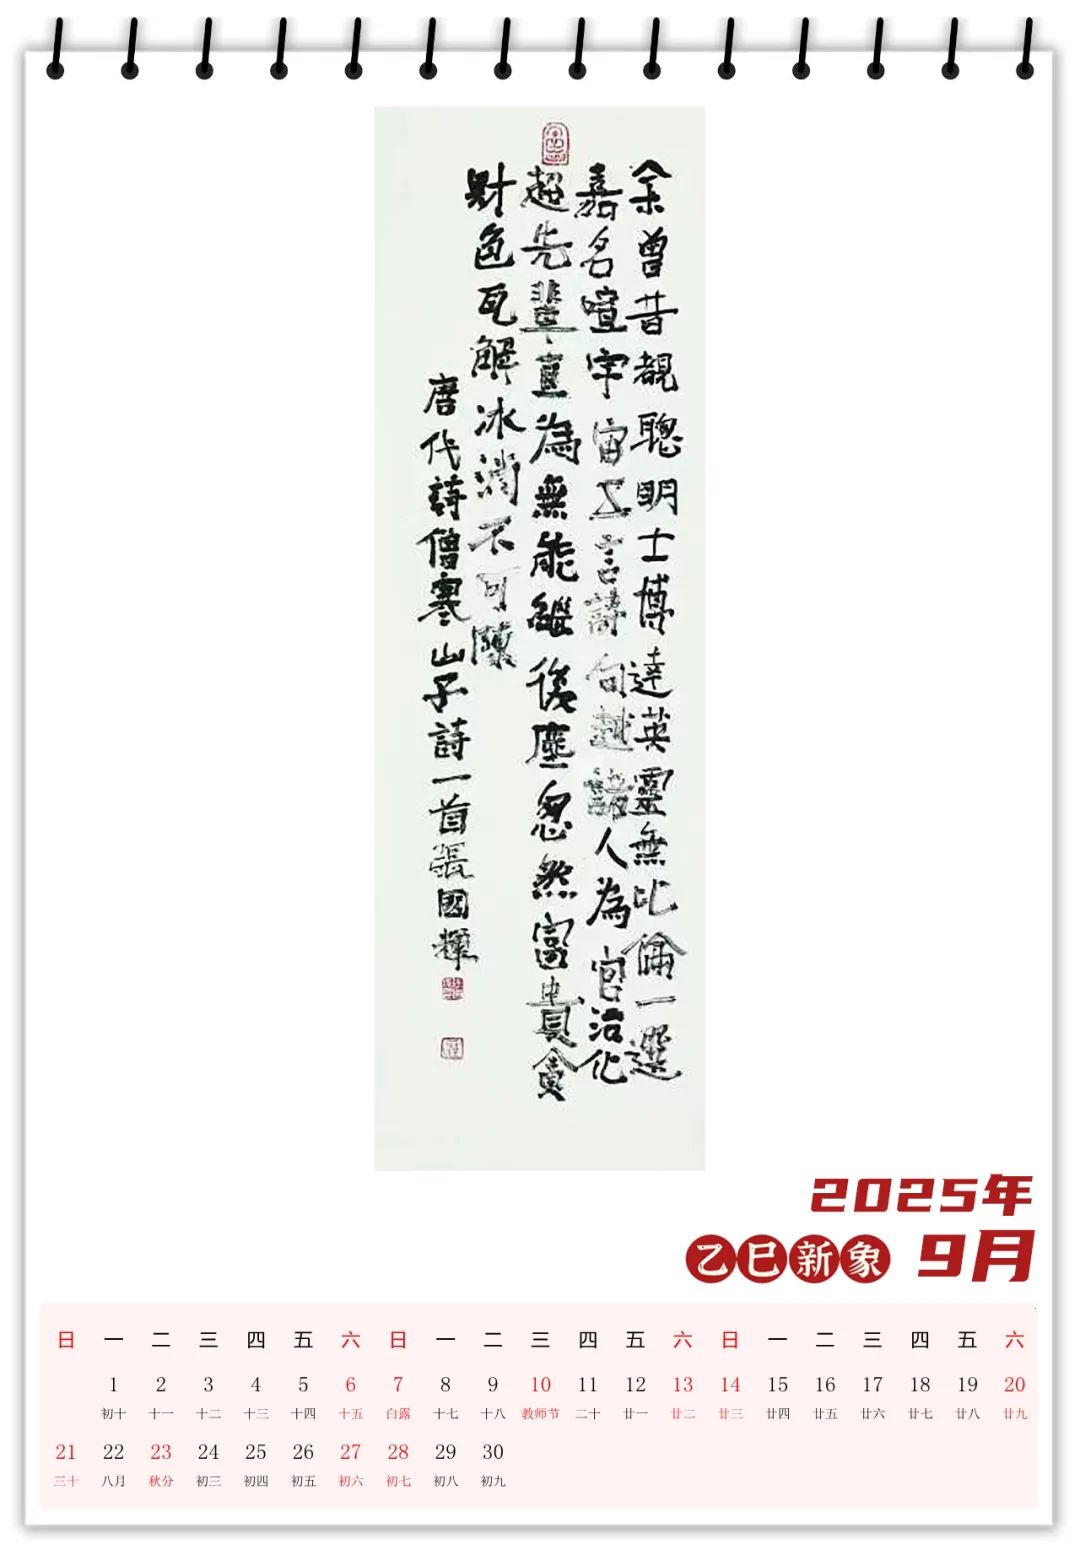 余曾昔覩聰明士博達英靈無比倫一選
嘉名喧宇宙五言詩句越諸人為官治化
超先輩直為無能繼後塵忽然富貴貪
財色瓦解冰消不可陳
唐代詩僧寒山子詩一首張國輝
2025年
乙巳新象 9月
日 一 二 三 四 五 六 日 一 二 三 四 五 六 日 一 二 三 四 五 六
1 2 3 4 5 6 7 8 9 10 11 12 13 14 15 16 17 18 19 20
初十 十一 十二 十三 十四 十五 白露 十七 十八 教师节 二十 廿一 廿二 廿三 廿四 廿五 廿六 廿七 廿八 廿九
21 22 23 24 25 26 27 28 29 30
三十 八月 秋分 初三 初四 初五 初六 初七 初八 初九